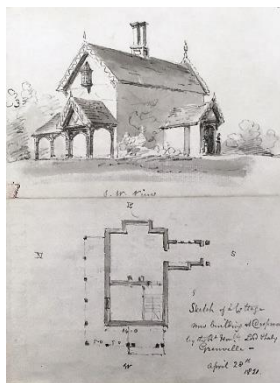 S. W. View
N
W
E
S
14.0
5.0
Sketch of a Cottage
now building at Dropmore
by the Rt Honble Lord
Grenville
April 28th
1821.